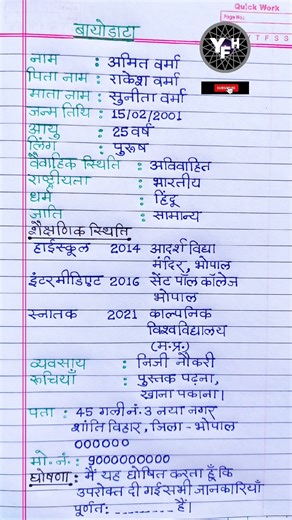 Quick Work
Page No.:
Y T F S S
YFH
SUBSCRIBE
बायोडाटा
नाम : अमित वर्मा
पिता नाम : राकेश वर्मा
माता नाम : सुनीता वर्मा
जन्म तिथि : 15/02/2001
आयु : 25 वर्ष
लिंग : पुरुष
वैवाहिक स्थिति : अविवाहित
राष्ट्रीयता : भारतीय
धर्म : हिंदू
जाति : सामान्य
शैक्षणिक स्थिति
हाईस्कूल 2014 आदर्श विद्या
मंदिर, भोपाल
इंटरमीडिएट 2016 सेंट पॉल कॉलेज
भोपाल
स्नातक 2021 काल्पनिक
विश्वविद्यालय
(म.प्र.)
व्यवसाय : निजी नौकरी
रूचियाँ : पुस्तक पढ़ना,
खाना पकाना।
पता : 45 गली नं. 3 नया नगर
शांति विहार, जिला - भोपाल
000000
मो. नं. : 9000000000
घोषणा : मैं यह घोषित करता हूँ कि
उपरोक्त दी गई सभी जानकारियाँ
पूर्णतः ........... हैं।